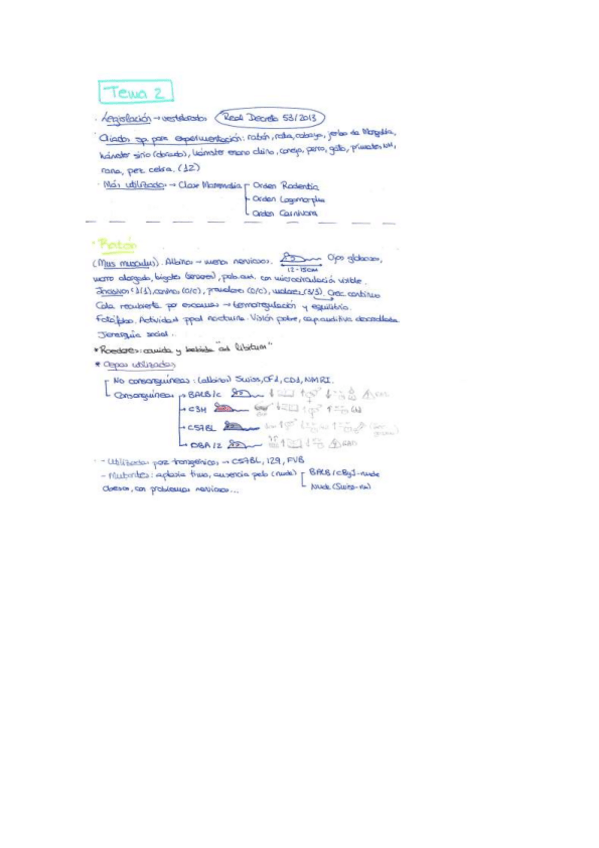 Tema 2
· Legislación → vertebrados Real Decreto 53/2013
· Criados sp para experimentación: ratón, rata, cobayo, jerbo de Mongolia,
hámster sirio (dorado), hámster enano chino, conejo, perro, gato, primates,
rana, pez cebra. (12)
· Más utilizados → Clase Mammalia Orden Rodentia
Orden Lagomorpha
Orden Carnivora
· Ratón
(Mus musculus). Albinos → menos nerviosos. Ojos globosos,
12-15cm
morro alargado, bigotes (sensores), pab. aur. con microcirculación visible.
Incisivos (1/1), caninos (0/0), premolares (0/0), molares (3/3). Crec continuo
Cola recubierta por escamas → termorregulación y equilibrio.
Fotófobo. Actividad ppal nocturna. Visión pobre, cap. auditiva desarrollada.
Jerarquía social.
* Roedores: comida y bebida "ad libitum"
* Cepas utilizadas
No consanguíneas: (albinos) Swiss, CF1, CD1, NMRI.
Consanguíneas → BALB/c
→ C3H
→ C57BL
→ DBA/2
· - Utilizados para transgénicos → C57BL, 129, FVB
- Mutantes: aplasia timo, ausencia pelo (nude) BALB/cByJ-nude
obesos, con problemas nerviosos... Nude (Swiss-nu)